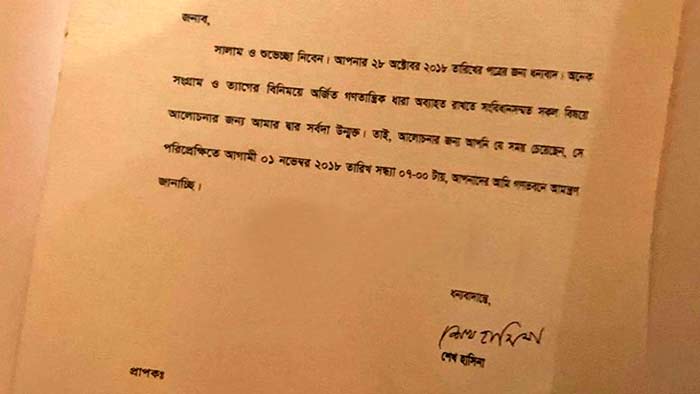 জনাব,
সালাম ও শুভেচ্ছা নিবেন। আপনার ২৮ অক্টোবর ২০১৮ তারিখের পত্রের জন্য ধন্যবাদ। অনেক
সংগ্রাম ও ত্যাগের বিনিময়ে অর্জিত গণতান্ত্রিক ধারা অব্যাহত রাখতে সংবিধানসম্মত সকল বিষয়ে
আলোচনার জন্য আমার দ্বার সর্বদা উন্মুক্ত। তাই, আলোচনার জন্য আপনি যে সময় চেয়েছেন, সে
পরিপ্রেক্ষিতে আগামী ০১ নভেম্বর ২০১৮ তারিখ সন্ধ্যা ০৭-০০ টায়, আপনাদের আমি গণভবনে আমন্ত্রণ
জানাচ্ছি।
ধন্যবাদান্তে,
শেখ হাসিনা
শেখ হাসিনা
প্রাপকঃ